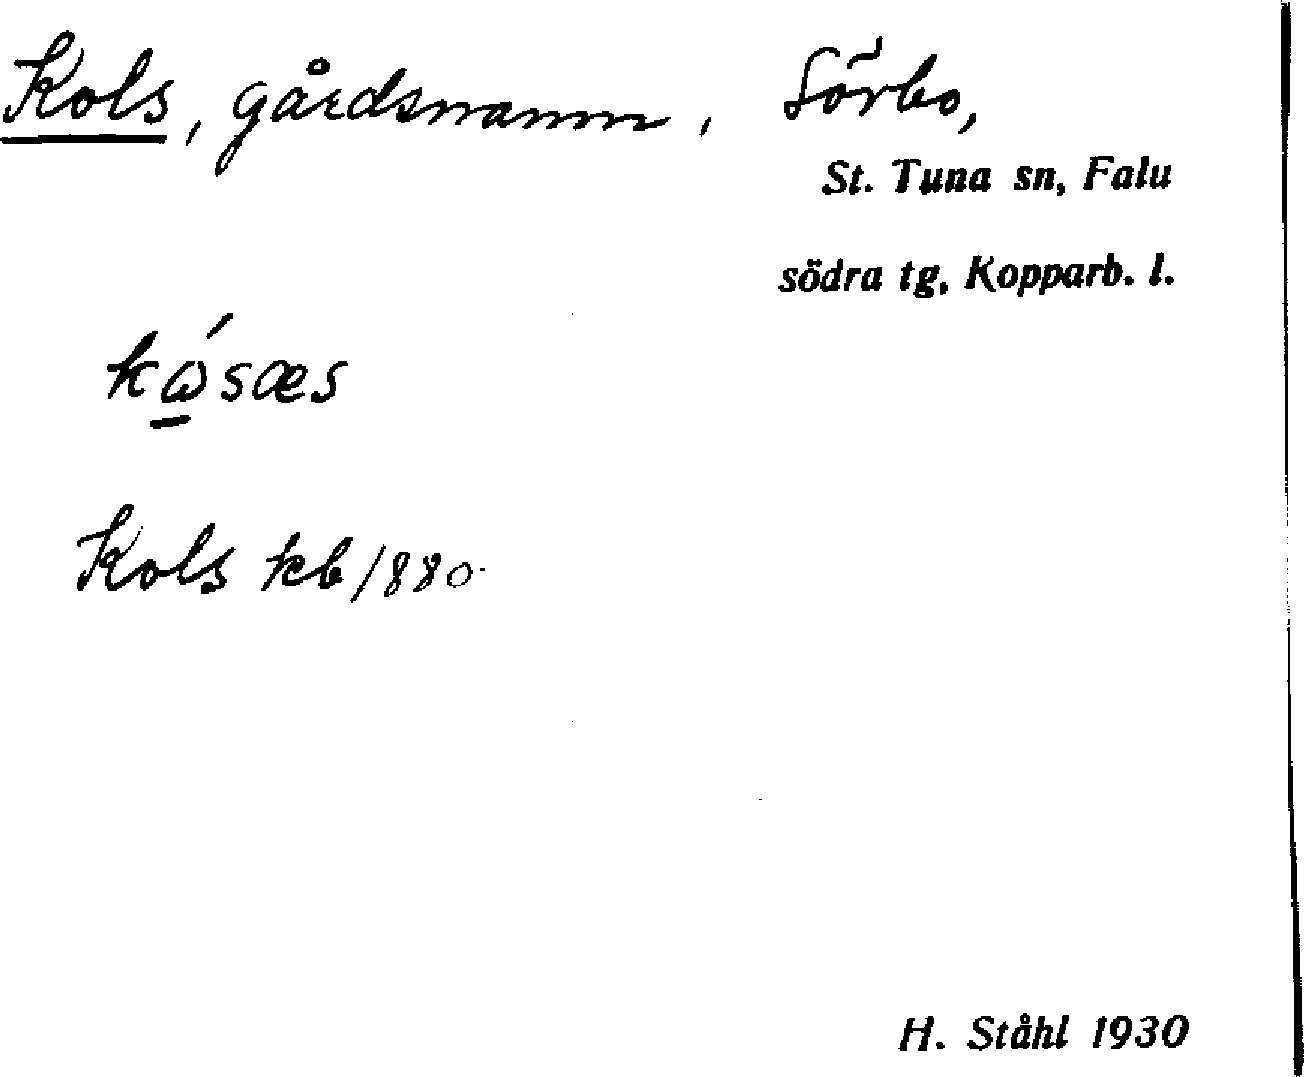 Kols, gårdsnamn, Sörbo,
St. Tuna sn, Falu
södra tg, Kopparb. l.
Kols kb 1880
H. Ståhl 1930